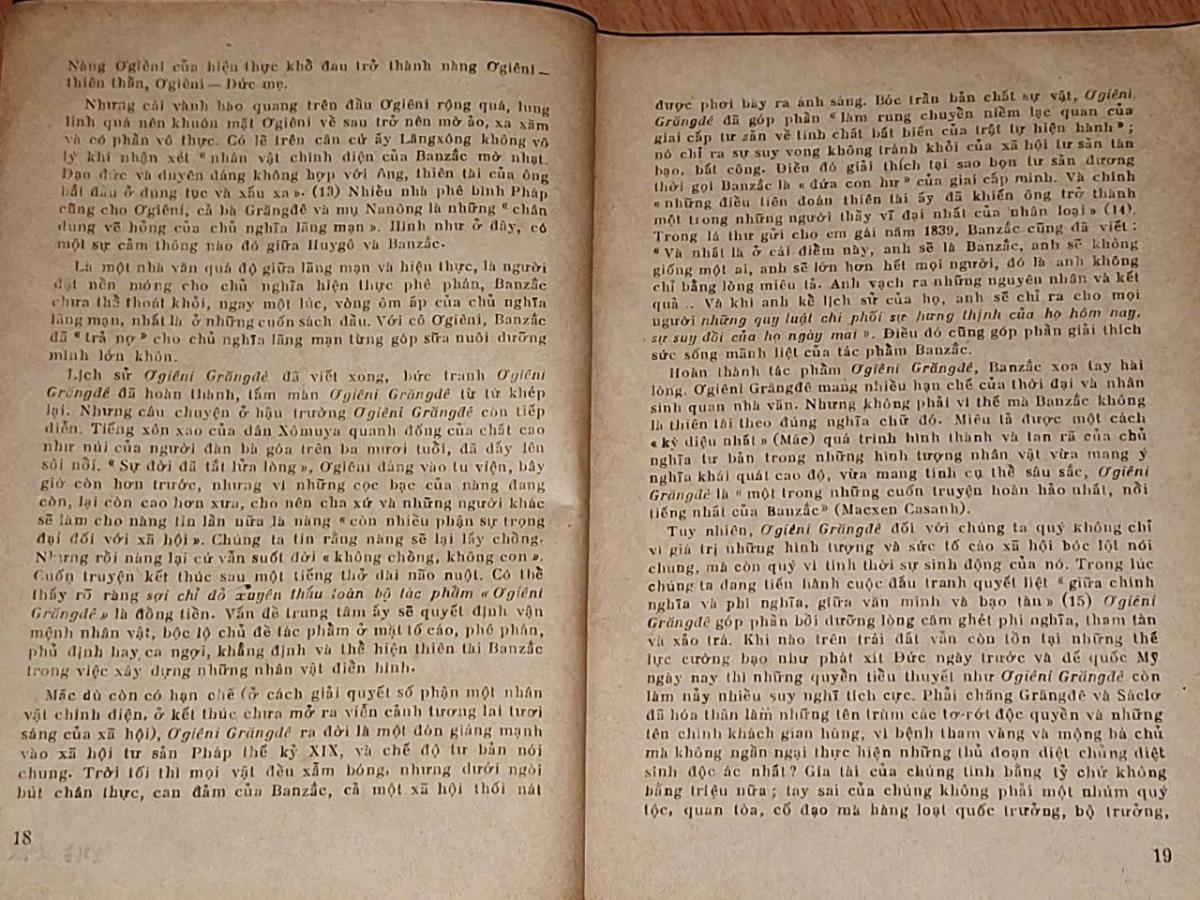 Nàng Ơgiêni của hiện thực khổ đau trở thành nàng Ơgiêni —
thiên thần, Ơgiêni — Đức mẹ.
Nhưng cái vành hào quang trên đầu Ơgiêni rộng quá, lung
linh quá nên khuôn mặt Ơgiêni về sau trở nên mờ ảo, xa xăm
và có phần vô thực. Có lẽ trên căn cứ ấy Lăngxông không vô
lý khi nhận xét « nhân vật chính diện của Banzắc mờ nhạt.
Đạo đức và duyên dáng không hợp với ông, thiên tài của ông
bắt đầu ở dung tục và xấu xa ». (13) Nhiều nhà phê bình Pháp
cũng cho Ơgiêni, cả bà Grăngđê và mụ Nanông là những « chân
dung vẽ hỏng của chủ nghĩa lãng mạn ». Hình như ở đây, có
một sự cảm thông nào đó giữa Huygô và Banzắc.
Là một nhà văn quá độ giữa lãng mạn và hiện thực, là người
đặt nền móng cho chủ nghĩa hiện thực phê phán, Banzắc
chưa thể thoát khỏi, ngay một lúc, vòng ôm ấp của chủ nghĩa
lãng mạn, nhất là ở những cuốn sách đầu. Với cô Ơgiêni, Banzắc
đã « trả nợ » cho chủ nghĩa lãng mạn từng góp sữa nuôi dưỡng
mình lớn khôn.
Lịch sử Ơgiêni Grăngđê đã viết xong, bức tranh Ơgiêni
Grăngđê đã hoàn thành, tấm màn Ơgiêni Grăngđê từ từ khép
lại. Nhưng câu chuyện ở hậu trường Ơgiêni Grăngđê còn tiếp
diễn. Tiếng xôn xao của dân Xômuya quanh đống của chất cao
như núi của người đàn bà góa trên ba mươi tuổi, đã dấy lên
sôi nổi. « Sự đời đã tắt lửa lòng », Ơgiêni dâng vào tu viện, bây
giờ còn hơn trước, nhưng vì những cọc bạc của nàng đang
còn, lại còn cao hơn xưa, cho nên cha xứ và những người khác
sẽ làm cho nàng tin lần nữa là nàng « còn nhiều phận sự trọng
đại đối với xã hội ». Chúng ta tin rằng nàng sẽ lại lấy chồng.
Nhưng rồi nàng lại cứ vẫn suốt đời « không chồng, không con ».
Cuốn truyện kết thúc sau một tiếng thở dài não nuột. Có thể
thấy rõ ràng sợi chỉ đỏ xuyên thấu toàn bộ tác phẩm « Ơgiêni
Grăngđê » là đồng tiền. Vấn đề trung tâm ấy sẽ quyết định vận
mệnh nhân vật, bộc lộ chủ đề tác phẩm ở mặt tố cáo, phê phán,
phủ định hay ca ngợi, khẳng định và thể hiện thiên tài Banzắc
trong việc xây dựng những nhân vật điển hình.
Mặc dù còn có hạn chế (ở cách giải quyết số phận một nhân
vật chính diện, ở kết thúc chưa mở ra viễn cảnh tương lai tươi
sáng của xã hội), Ơgiêni Grăngđê ra đời là một đòn giáng mạnh
vào xã hội tư sản Pháp thế kỷ XIX, và chế độ tư bản nói
chung. Trời tối thì mọi vật đều xẫm bóng, nhưng dưới ngòi
bút chân thực, can đảm của Banzắc, cả một xã hội thối nát
18
được phơi bày ra ánh sáng. Bóc trần bản chất sự vật, Ơgiêni
Grăngđê đã góp phần « làm rung chuyển niềm lạc quan của
giai cấp tư sản về tính chất bất biến của trật tự hiện hành » ;
nó chỉ ra sự suy vong không tránh khỏi của xã hội tư sản tàn
bạo, bất công. Điều đó giải thích tại sao bọn tư sản đương
thời gọi Banzắc là « đứa con hư » của giai cấp mình. Và chính
« những điều tiên đoán thiên tài ấy đã khiến ông trở thành
một trong những người thầy vĩ đại nhất của nhân loại » (14).
Trong lá thư gửi cho em gái năm 1839, Banzắc cũng đã viết :
« Và nhất là ở cái điểm này, anh sẽ là Banzắc, anh sẽ không
giống một ai, anh sẽ lớn hơn hết mọi người, đó là anh không
chỉ bằng lòng miêu tả. Anh vạch ra những nguyên nhân và kết
quả .. Và khi anh kể lịch sử của họ, anh sẽ chỉ ra cho mọi
người những quy luật chi phối sự hưng thịnh của họ hôm nay,
sự suy đồi của họ ngày mai ». Điều đó cũng góp phần giải thích
sức sống mãnh liệt của tác phẩm Banzắc.
Hoàn thành tác phẩm Ơgiêni Grăngđê, Banzắc xoa tay hài
lòng. Ơgiêni Grăngđê mang nhiều hạn chế của thời đại và nhân
sinh quan nhà văn. Nhưng không phải vì thế mà Banzắc không
là thiên tài theo đúng nghĩa chữ đó. Miêu tả được một cách
« kỳ diệu nhất » (Mác) quá trình hình thành và tan rã của chủ
nghĩa tư bản trong những hình tượng nhân vật vừa mang ý
nghĩa khái quát cao độ, vừa mang tính cụ thể sâu sắc, Ơgiêni
Grăngđê là « một trong những cuốn truyện hoàn hảo nhất, nổi
tiếng nhất của Banzắc » (Macxen Casanh).
Tuy nhiên, Ơgiêni Grăngđê đối với chúng ta quý không chỉ
vì giá trị những hình tượng và sức tố cáo xã hội bóc lột nói
chung, mà còn quý vì tính thời sự sinh động của nó. Trong lúc
chúng ta đang tiến hành cuộc đấu tranh quyết liệt « giữa chính
nghĩa và phi nghĩa, giữa văn minh và bạo tàn » (15) Ơgiêni
Grăngđê góp phần bồi dưỡng lòng căm ghét phi nghĩa, tham tàn
và xảo trá. Khi nào trên trái đất vẫn còn tồn tại những thế
lực cường bạo như phát xít Đức ngày trước và đế quốc Mỹ
ngày nay thì những quyền tiểu thuyết như Ơgiêni Grăngđê còn
làm nảy nhiều suy nghĩ tích cực. Phải chăng Grăngđê và Sáclơ
đã hóa thân làm những tên trùm các tơ-rớt độc quyền và những
tên chính khách gian hùng, vì bệnh tham vàng và mộng bá chủ
mà không ngần ngại thực hiện những thủ đoạn diệt chủng diệt
sinh độc ác nhất ? Gia tài của chúng tính bằng tỷ chứ không
bằng triệu nữa ; tay sai của chúng không phải một nhúm quý
tộc, quan tòa, cố đạo mà hàng loạt quốc trưởng, bộ trưởng,
19